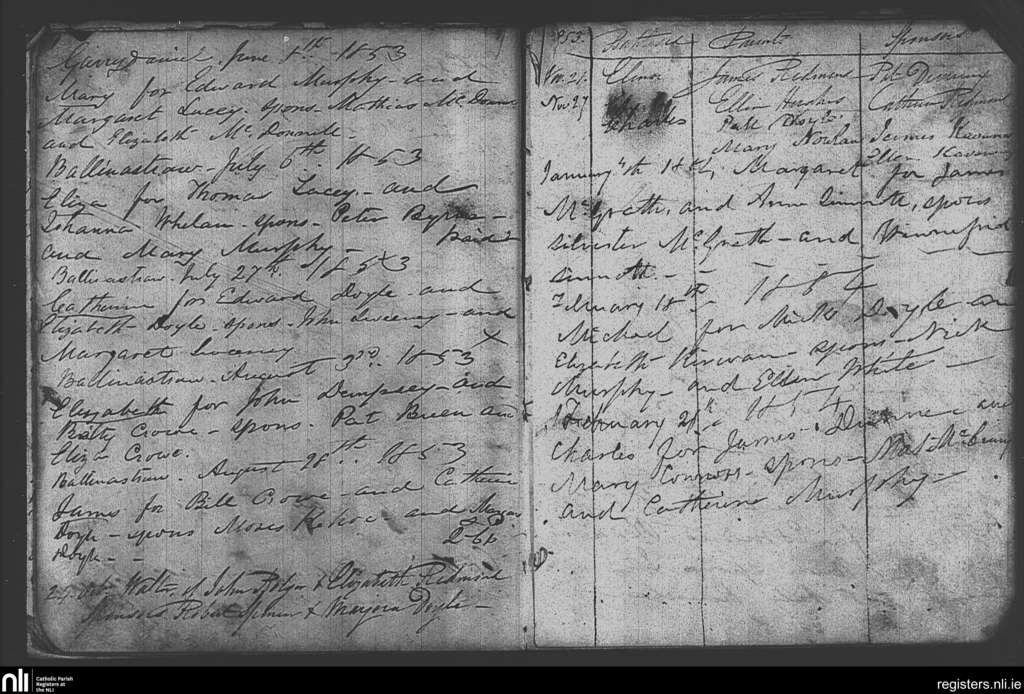 Garrydaniel. June 5th 1853
Mary for Edward Murphy - and
Margaret Lacey. spons. Mathias Mc Donn
and Elizabeth Mc Donnell -
Ballinastraw - July 6th. 1853
Eliza for Thomas Lacey - and
Johanna Whelan - spons - Peter Byrne -
and Mary Murphy - Paid
Ballinastraw - July 27th. 1853
Catherine for Edward Doyle - and
Elizabeth Doyle - spons - John Sweeney - and
Margaret Sweeney X
Ballinastraw - August 3rd. 1853
Elizabeth for John Dempsey - and
Betty Crowe - spons. Pat Breen and
Eliza Crowe.
Ballinastraw. August 28th. 1853
James for Bill Crowe - and Catherine
Doyle - spons Moses Kehoe and Margar
Doyle - - 2-6
Walter of John & Elizabeth Redmond
Sponsors Robert & Doyle -
1853. Baptized Parents Sponsors
Nov. 21. Elinor James Redmond Pat
Ellen Catherine Redmond
Nov 27 Charles Patk Doyle
Mary Nowlan James Kavana
Ellen Kavana
January 18th, Margaret for James
McGrath, and Anne Sinnott, spons
Silvester McGrath - and Winnefrid
Sinnott. - - -
February 18th 1854
Michael for Doyle an
Elizabeth Kirwan - spons - Nick
Murphy - and Ellen White -
February 21st 1854
Charles for James Dunne and
Mary Connors - spons -
and Catherine Murphy -
nli
Catholic Parish
Registers at
the NLI
registers.nli.ie